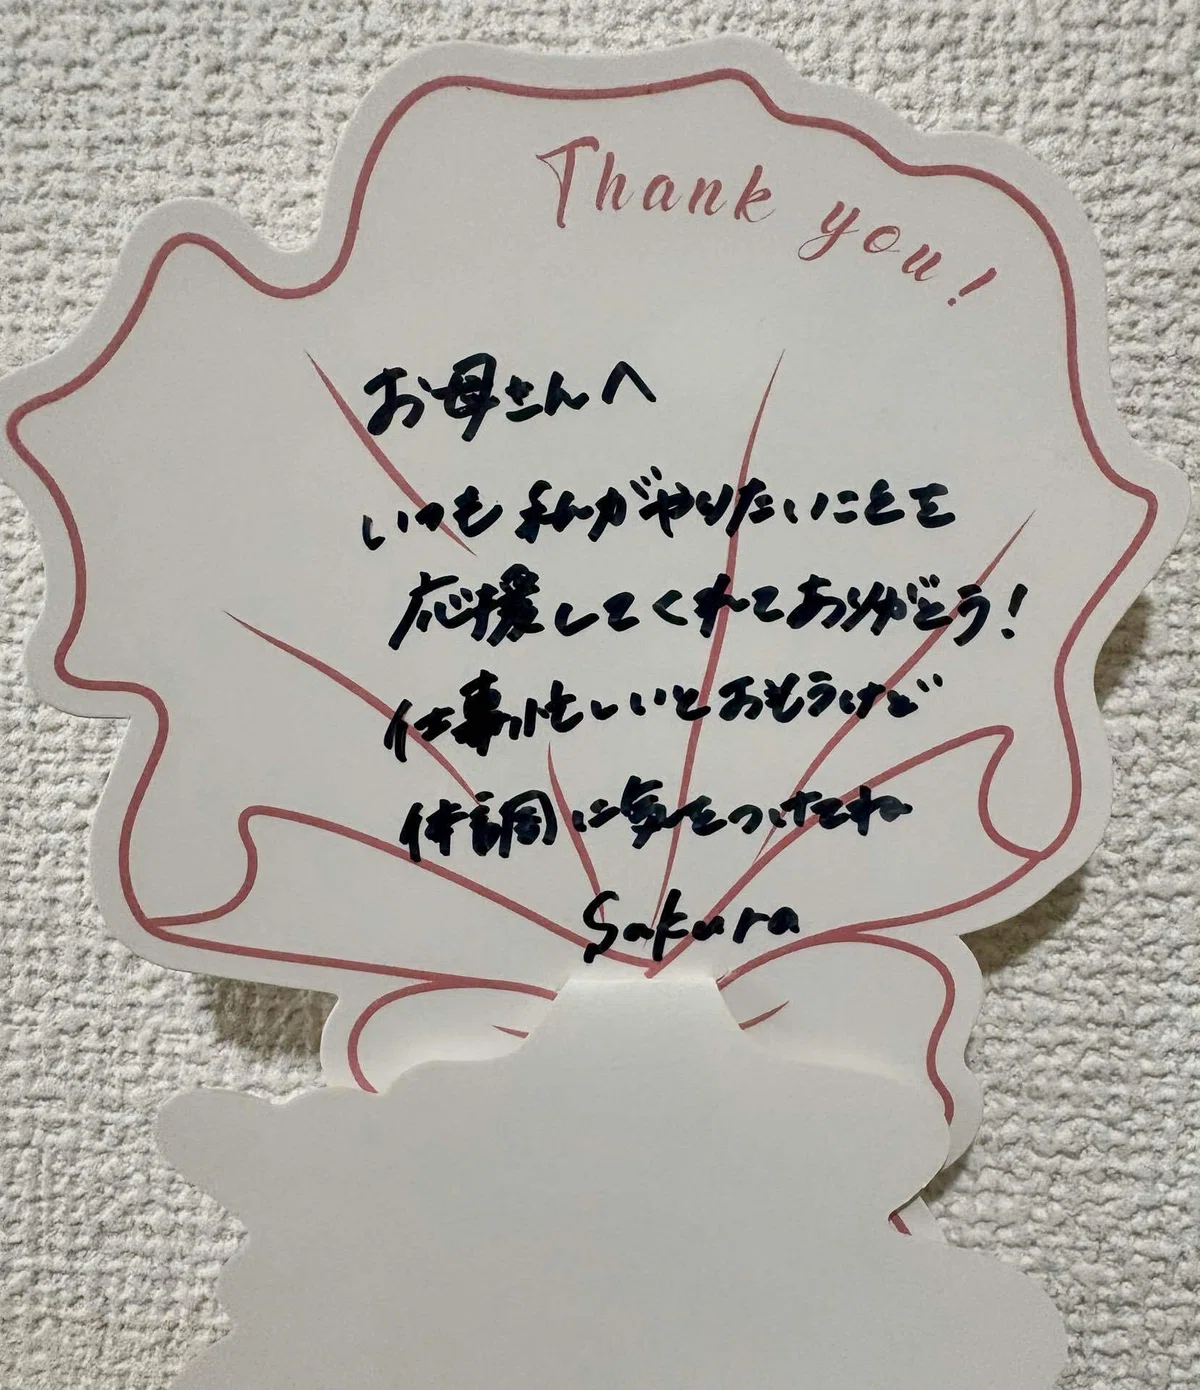 Thank you!
お母さんへ
いつも私がやりたいことを
応援してくれてありがとう!
仕事忙しいとおもうけど
体調に気をつけてね
Sakura